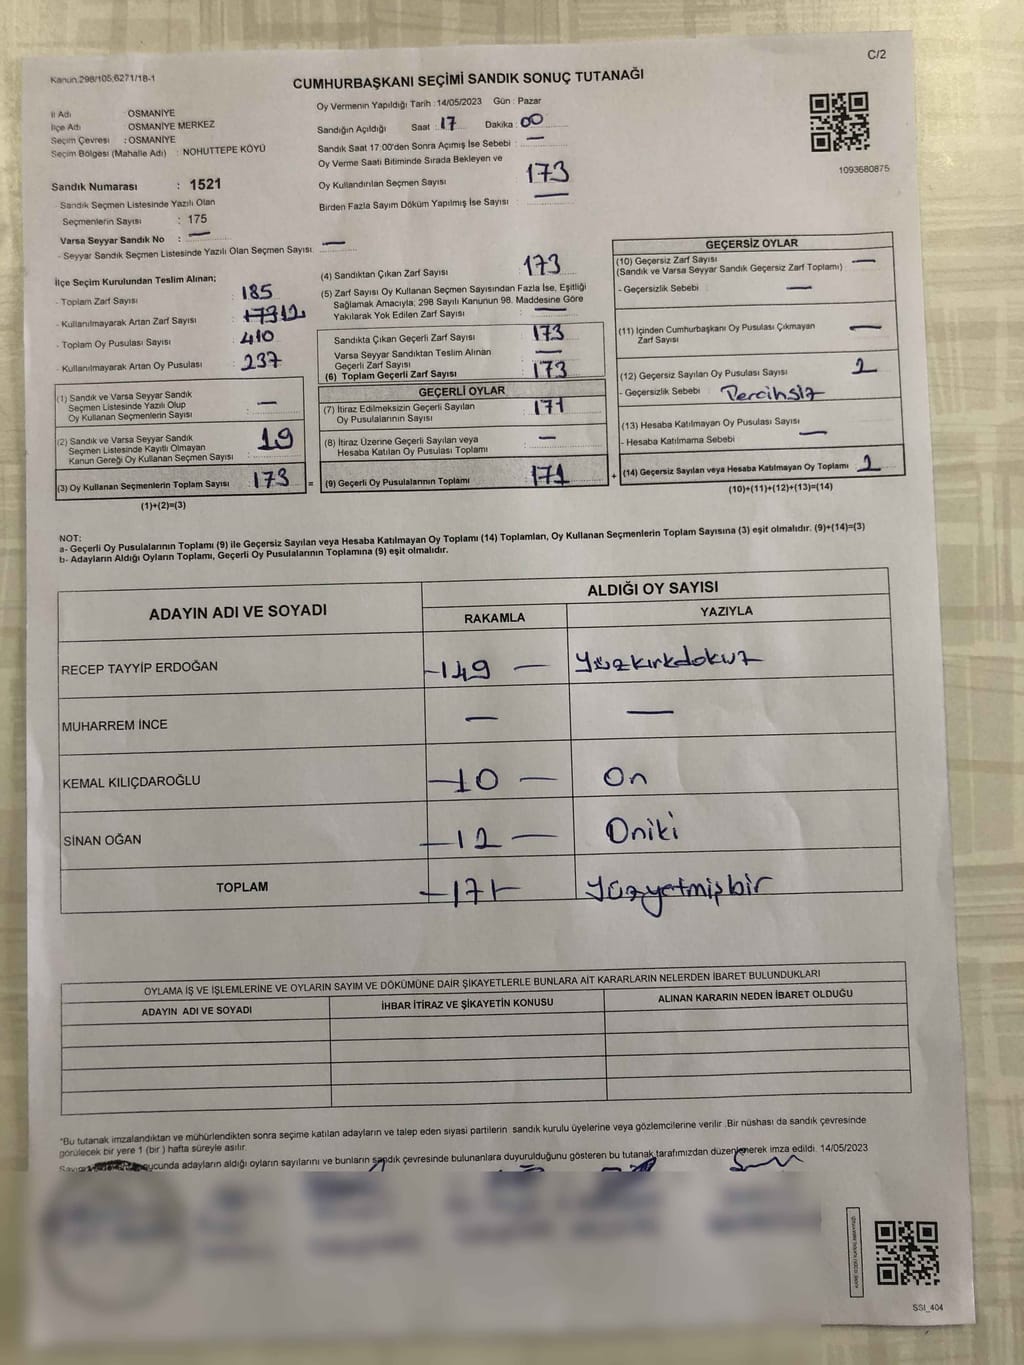 C/2
Kanun:298/105;6271/18-1
CUMHURBAŞKANI SEÇİMİ SANDIK SONUÇ TUTANAĞI
İl Adı : OSMANİYE
İlçe Adı : OSMANİYE MERKEZ
Seçim Çevresi : OSMANİYE
Seçim Bölgesi (Mahalle Adı) : NOHUTTEPE KÖYÜ
Sandık Numarası : 1521
- Sandık Seçmen Listesinde Yazılı Olan
Seçmenlerin Sayısı : 175
Varsa Seyyar Sandık No : —
- Seyyar Sandık Seçmen Listesinde Yazılı Olan Seçmen Sayısı : —
Oy Vermenin Yapıldığı Tarih : 14/05/2023 Gün : Pazar
Sandığın Açıldığı Saat : 17 Dakika : 00
Sandık Saat 17:00'den Sonra Açımış İse Sebebi : —
Oy Verme Saati Bitiminde Sırada Bekleyen ve
Oy Kullandırılan Seçmen Sayısı 173
Birden Fazla Sayım Döküm Yapılmış İse Sayısı : —
1093680875
İlçe Seçim Kurulundan Teslim Alınan;
- Toplam Zarf Sayısı : 185
- Kullanılmayarak Artan Zarf Sayısı : 12
- Toplam Oy Pusulası Sayısı : 410
- Kullanılmayarak Artan Oy Pusulası : 237
(1) Sandık ve Varsa Seyyar Sandık
Seçmen Listesinde Yazılı Olup
Oy Kullanan Seçmenlerin Sayısı : —
(2) Sandık ve Varsa Seyyar Sandık
Seçmen Listesinde Kayıtlı Olmayan
Kanun Gereği Oy Kullanan Seçmen Sayısı : 19
(3) Oy Kullanan Seçmenlerin Toplam Sayısı : 173 =
(1)+(2)=(3)
(4) Sandıktan Çıkan Zarf Sayısı : 173
(5) Zarf Sayısı Oy Kullanan Seçmen Sayısından Fazla İse, Eşitliği
Sağlamak Amacıyla; 298 Sayılı Kanunun 98. Maddesine Göre
Yakılarak Yok Edilen Zarf Sayısı : —
Sandıkta Çıkan Geçerli Zarf Sayısı : 173
Varsa Seyyar Sandıktan Teslim Alınan
Geçerli Zarf Sayısı : —
(6) Toplam Geçerli Zarf Sayısı : 173
GEÇERLİ OYLAR
(7) İtiraz Edilmeksizin Geçerli Sayılan
Oy Pusulalarının Sayısı : 171
(8) İtiraz Üzerine Geçerli Sayılan veya
Hesaba Katılan Oy Pusulası Toplamı : —
(9) Geçerli Oy Pusulalarının Toplamı : 171 +
GEÇERSİZ OYLAR
(10) Geçersiz Zarf Sayısı
(Sandık ve Varsa Seyyar Sandık Geçersiz Zarf Toplamı) : —
- Geçersizlik Sebebi : —
(11) İçinden Cumhurbaşkanı Oy Pusulası Çıkmayan
Zarf Sayısı : —
(12) Geçersiz Sayılan Oy Pusulası Sayısı : 2
- Geçersizlik Sebebi : Tercihsiz
(13) Hesaba Katılmayan Oy Pusulası Sayısı
- Hesaba Katılmama Sebebi : —
(14) Geçersiz Sayılan veya Hesaba Katılmayan Oy Toplamı : 2
(10)+(11)+(12)+(13)=(14)
NOT:
a- Geçerli Oy Pusulalarının Toplamı (9) ile Geçersiz Sayılan veya Hesaba Katılmayan Oy Toplamı (14) Toplamları, Oy Kullanan Seçmenlerin Toplam Sayısına (3) eşit olmalıdır. (9)+(14)=(3)
b- Adayların Aldığı Oyların Toplamı, Geçerli Oy Pusulalarının Toplamına (9) eşit olmalıdır.
ADAYIN ADI VE SOYADI ALDIĞI OY SAYISI
RAKAMLA YAZIYLA
RECEP TAYYİP ERDOĞAN —149— Yüzkırkdokuz
MUHARREM İNCE — —
KEMAL KILIÇDAROĞLU —10— On
SİNAN OĞAN —12— Oniki
TOPLAM —171— Yüzyetmişbir
OYLAMA İŞ VE İŞLEMLERİNE VE OYLARIN SAYIM VE DÖKÜMÜNE DAİR ŞİKAYETLERLE BUNLARA AİT KARARLARIN NELERDEN İBARET BULUNDUKLARI
ADAYIN ADI VE SOYADI İHBAR İTİRAZ VE ŞİKAYETİN KONUSU ALINAN KARARIN NEDEN İBARET OLDUĞU
*Bu tutanak imzalandıktan ve mühürlendikten sonra seçime katılan adayların ve talep eden siyasi partilerin sandık kurulu üyelerine veya gözlemcilerine verilir. Bir nüshası da sandık çevresinde
görülecek bir yere 1 (bir) hafta süreyle asılır.
adayların aldığı oyların sayılarını ve bunların sandık çevresinde bulunanlara duyurulduğunu gösteren bu tutanak tarafımızdan düzenlenerek imza edildi. 14/05/2023
SSI_404